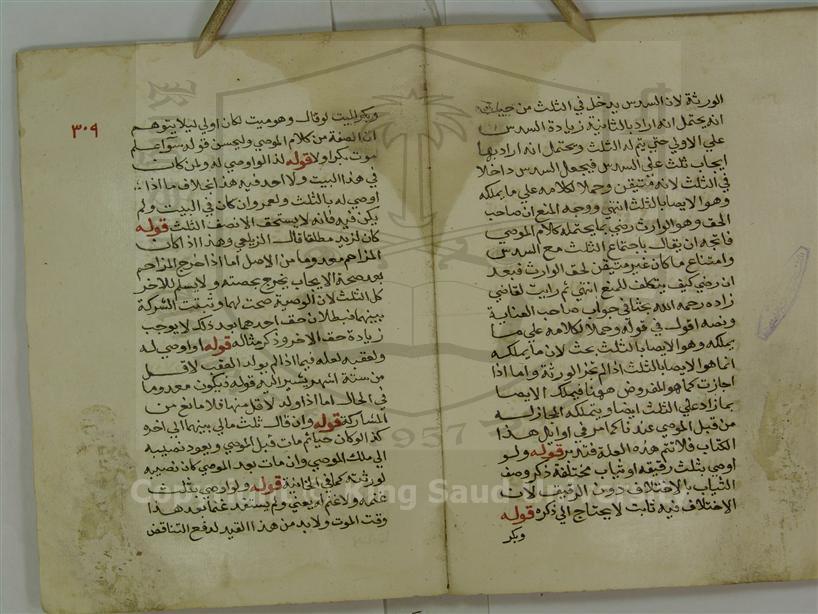 الورثة لان السدس يدخل في الثلث من حيث
انه يحتمل انه اراد بالثانية زيادة السدس
علي الاولي حتي يتم له الثلث ويحتمل انه اراد بها
ايجاب ثلث علي السدس فيجعل السدس داخلا
في الثلث لانه متيقن وحملا لكلامه علي ما يملكه
وهو الايصا بالثلث انتهي ووجه المنع ان صاحب
الحق وهو الوارث رضي بما يحتمله كلام الموصي
فاتجه ان يقال باجتماع الثلث مع السدس
وامتناع ما كان غير متيقن لحق الوارث فبعد
ان رضي كيف يتكلف للمنع انتهي ثم رايت لقاضي
زاده رحمه الله بحثا في جواب صاحب العناية
ونصه اقول في قوله وحملا لكلامه علي ما
يملكه وهو الايصا بالثلث بحث لان ما يملكه
انما هو الايصا بالثلث اذا لم تجز الورثة واما اذا
اجازت كما هو المفروض ههنا فيملك الايصا
بما زاد علي الثلث ايضا ويتملكه المجاز له
من قبل الموصي عندنا كما مر في اوايل هذا
الكتاب فلا تتم هذه العلة فتدبر قوله ولو
اوصي بثلث رقيقه او ثياب مختلفة ذكر وصف
الثياب بالاختلاف دون الرقيق لان
الاختلاف فيه ثابت لا يحتاج الي ذكره قوله
وبكر
٣٠٩
وبكر لميت لو قال وهو ميت لكان اولي ليلا يتوهم
ان الصفة من كلام الموصي وليحسن قوله سوا علم
موت بكر اولا قوله لذا لو اوصي له ولمن كان
في هذا البيت ولا احد فيه هذا بخلاف ما اذا
اوصي له بالثلث ولعمرو ان كان في البيت ولم
يكن فيه فانه لا يستحق الا نصف الثلث قوله
كان لزيد مطلقا قال الزيلعي وهذا اذا كان
المزاحم معدوما من الاصل اما اذا خرج المزاحم
بعد صحة الايجاب يخرج بحصته ولا يسلم للاخر
كل الثلث لان الوصية صحت لهما وثبتت الشركة
بينهما فبطلان حق احدهما بعد ذلك لا يوجب
زيادة حق الاخر وذكر مثاله قوله او اوصي له
ولعقبه لعله فيما اذا لم يولد العقب لاقل
من ستة اشهر يشير اليه قوله فيكون معدوما
في الحال اما اذا ولد لاقل منها فلا مانع من
المشاركة قوله وان قال ثلث مالي بينهما الي اخره
كذا لو كان حيا ثم مات قبل الموصي ويعود نصيبه
الي ملك الموصي وان مات بعد الموصي كان نصيبه
لورثته كما في الخانية قوله ولو اوصي بثلث
غنمه ولا غنم له يعني ولم يستفد غنما بعد هذا
وقت الموت ولا بد من هذا القيد لدفع التناقض
Copyright © King Saud University
1957